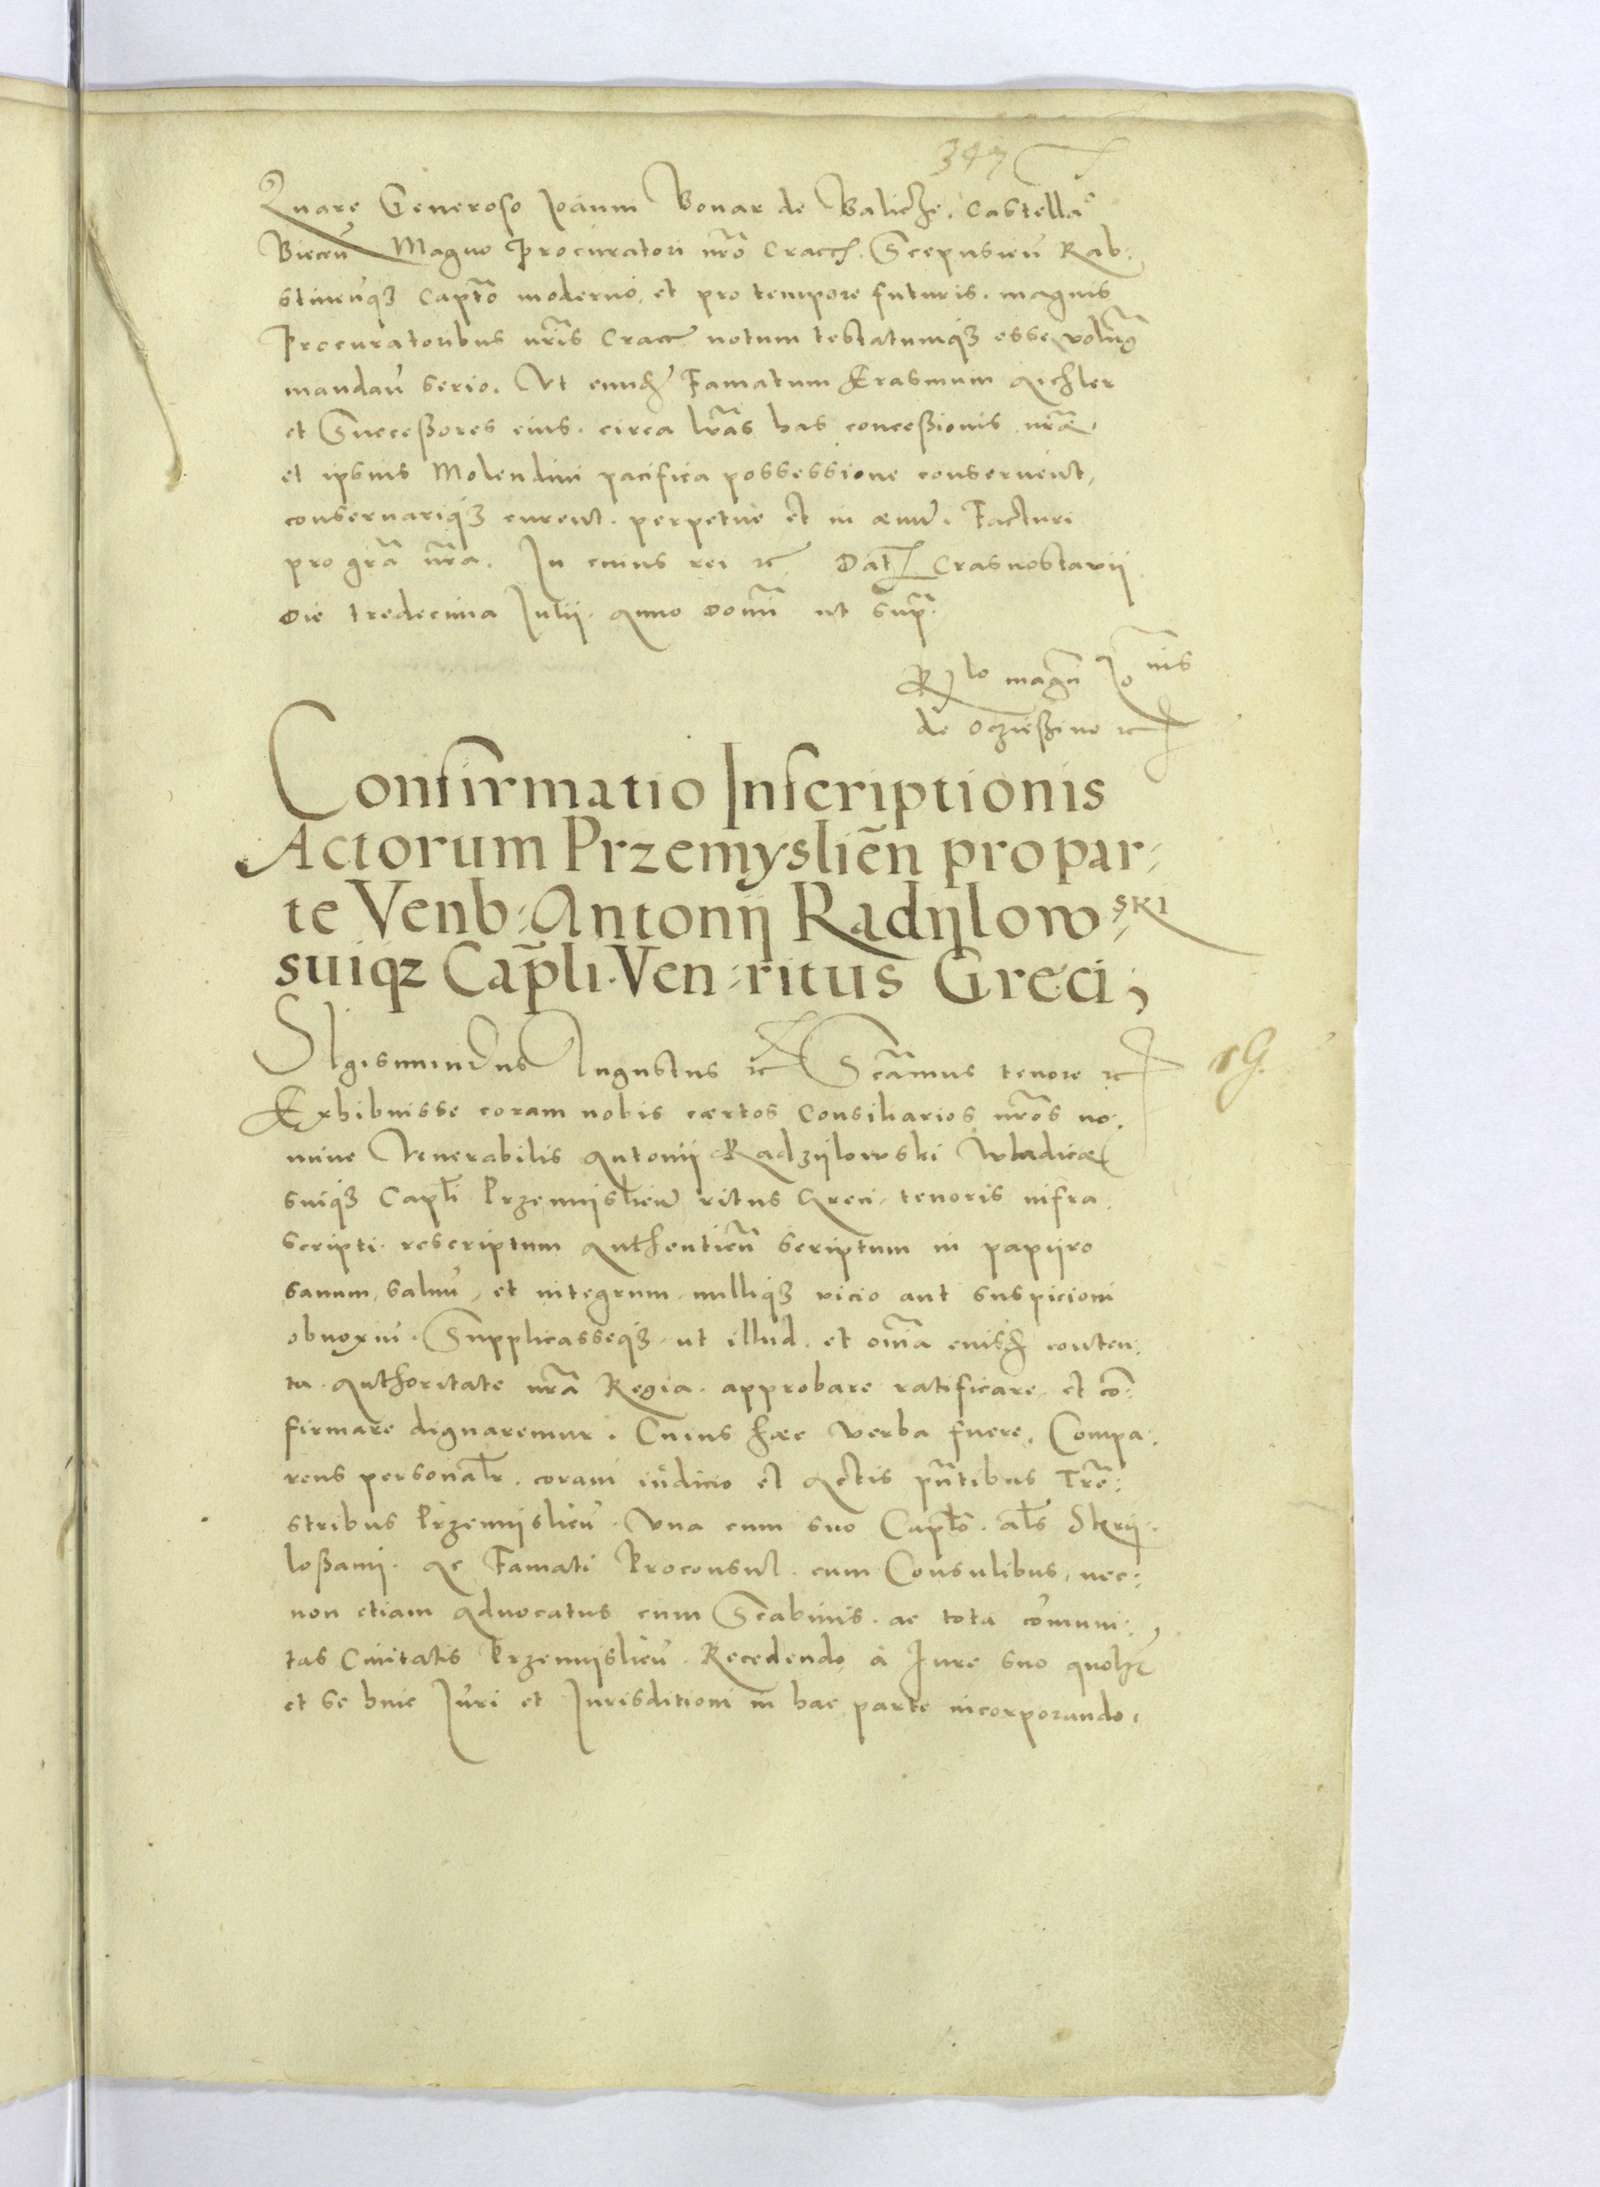 347
Quare Generoso Ioanni Bonar de Balicze. Castella°
Biecen̄ Magno Procuratori nr̃o Cracc̃. Scepusien̄ Rab-
stinen̄q3 Captõ moderno, et pro tempore futuris. magnis
Procuratoribus nr̃is Cracc̃ notum testatumq3 esse volum9
mandan̄ serio. Ut eund̃ Famatum Erasmum Aichler
et Succeßores eius. circa lr̃as has conceßionis nr̃æ.
et ipsius Molendini pacifica possessione conservent,
conservariq3 curent. perpetue et in ævũ. Facturi
pro gr̃a nr̃a. In cuius rei &c. Dat̃ Crasnostavii
Die tredecima Iulii. Anno Domĩ ut supr̃.
R̃lo magñ Ionnis
de Oczießino &c
Confirmatio Inscriptionis
Actorum Przemysliẽn pro par-
te Venb: Antonij Radijlowski
suiqz Cap̃li. Ven: ritus Greci;
SIgismundus Augustus &c Sc̃amus tenore &c
Exhibuisse coram nobis cærtos Consiliarios nr̃os no-
mine Venerabilis Antonij Radzijlowski Wladicæ
suiq3 Capl̃i Przemijslien̄ ritus Greci, tenoris infra
scripti. rescriptum Authenticũ scriptum in papijro
sanum, salvũ, et integrum. nulliq3 vicio aut suspicioni
obnoxiũ. Supplicasseq3. ut illud. et omĩa eiusd̃ conten-
ta. Authoritate nr̃a Regia. approbare ratificare, et cõ-
firmare dignaremur. Cuius hæc verba fuere. Compa-
rens personalr̃. coram iudicio et Actis pñtibus Tr̃e-
stribus Przemijslien̄. Una cum suo Captl̃o. al̃s Skrij-
loßami. Ac Famati Proconsul. cum Consulibus, nec-
non etiam Advocatus cum Scabinis. ac tota cõmuni-
tas Civitatis Przemijslien̄. Recedendo à Iure suo quolz
et se huic Iuri et Iurisditioni in hac parte incorporando.